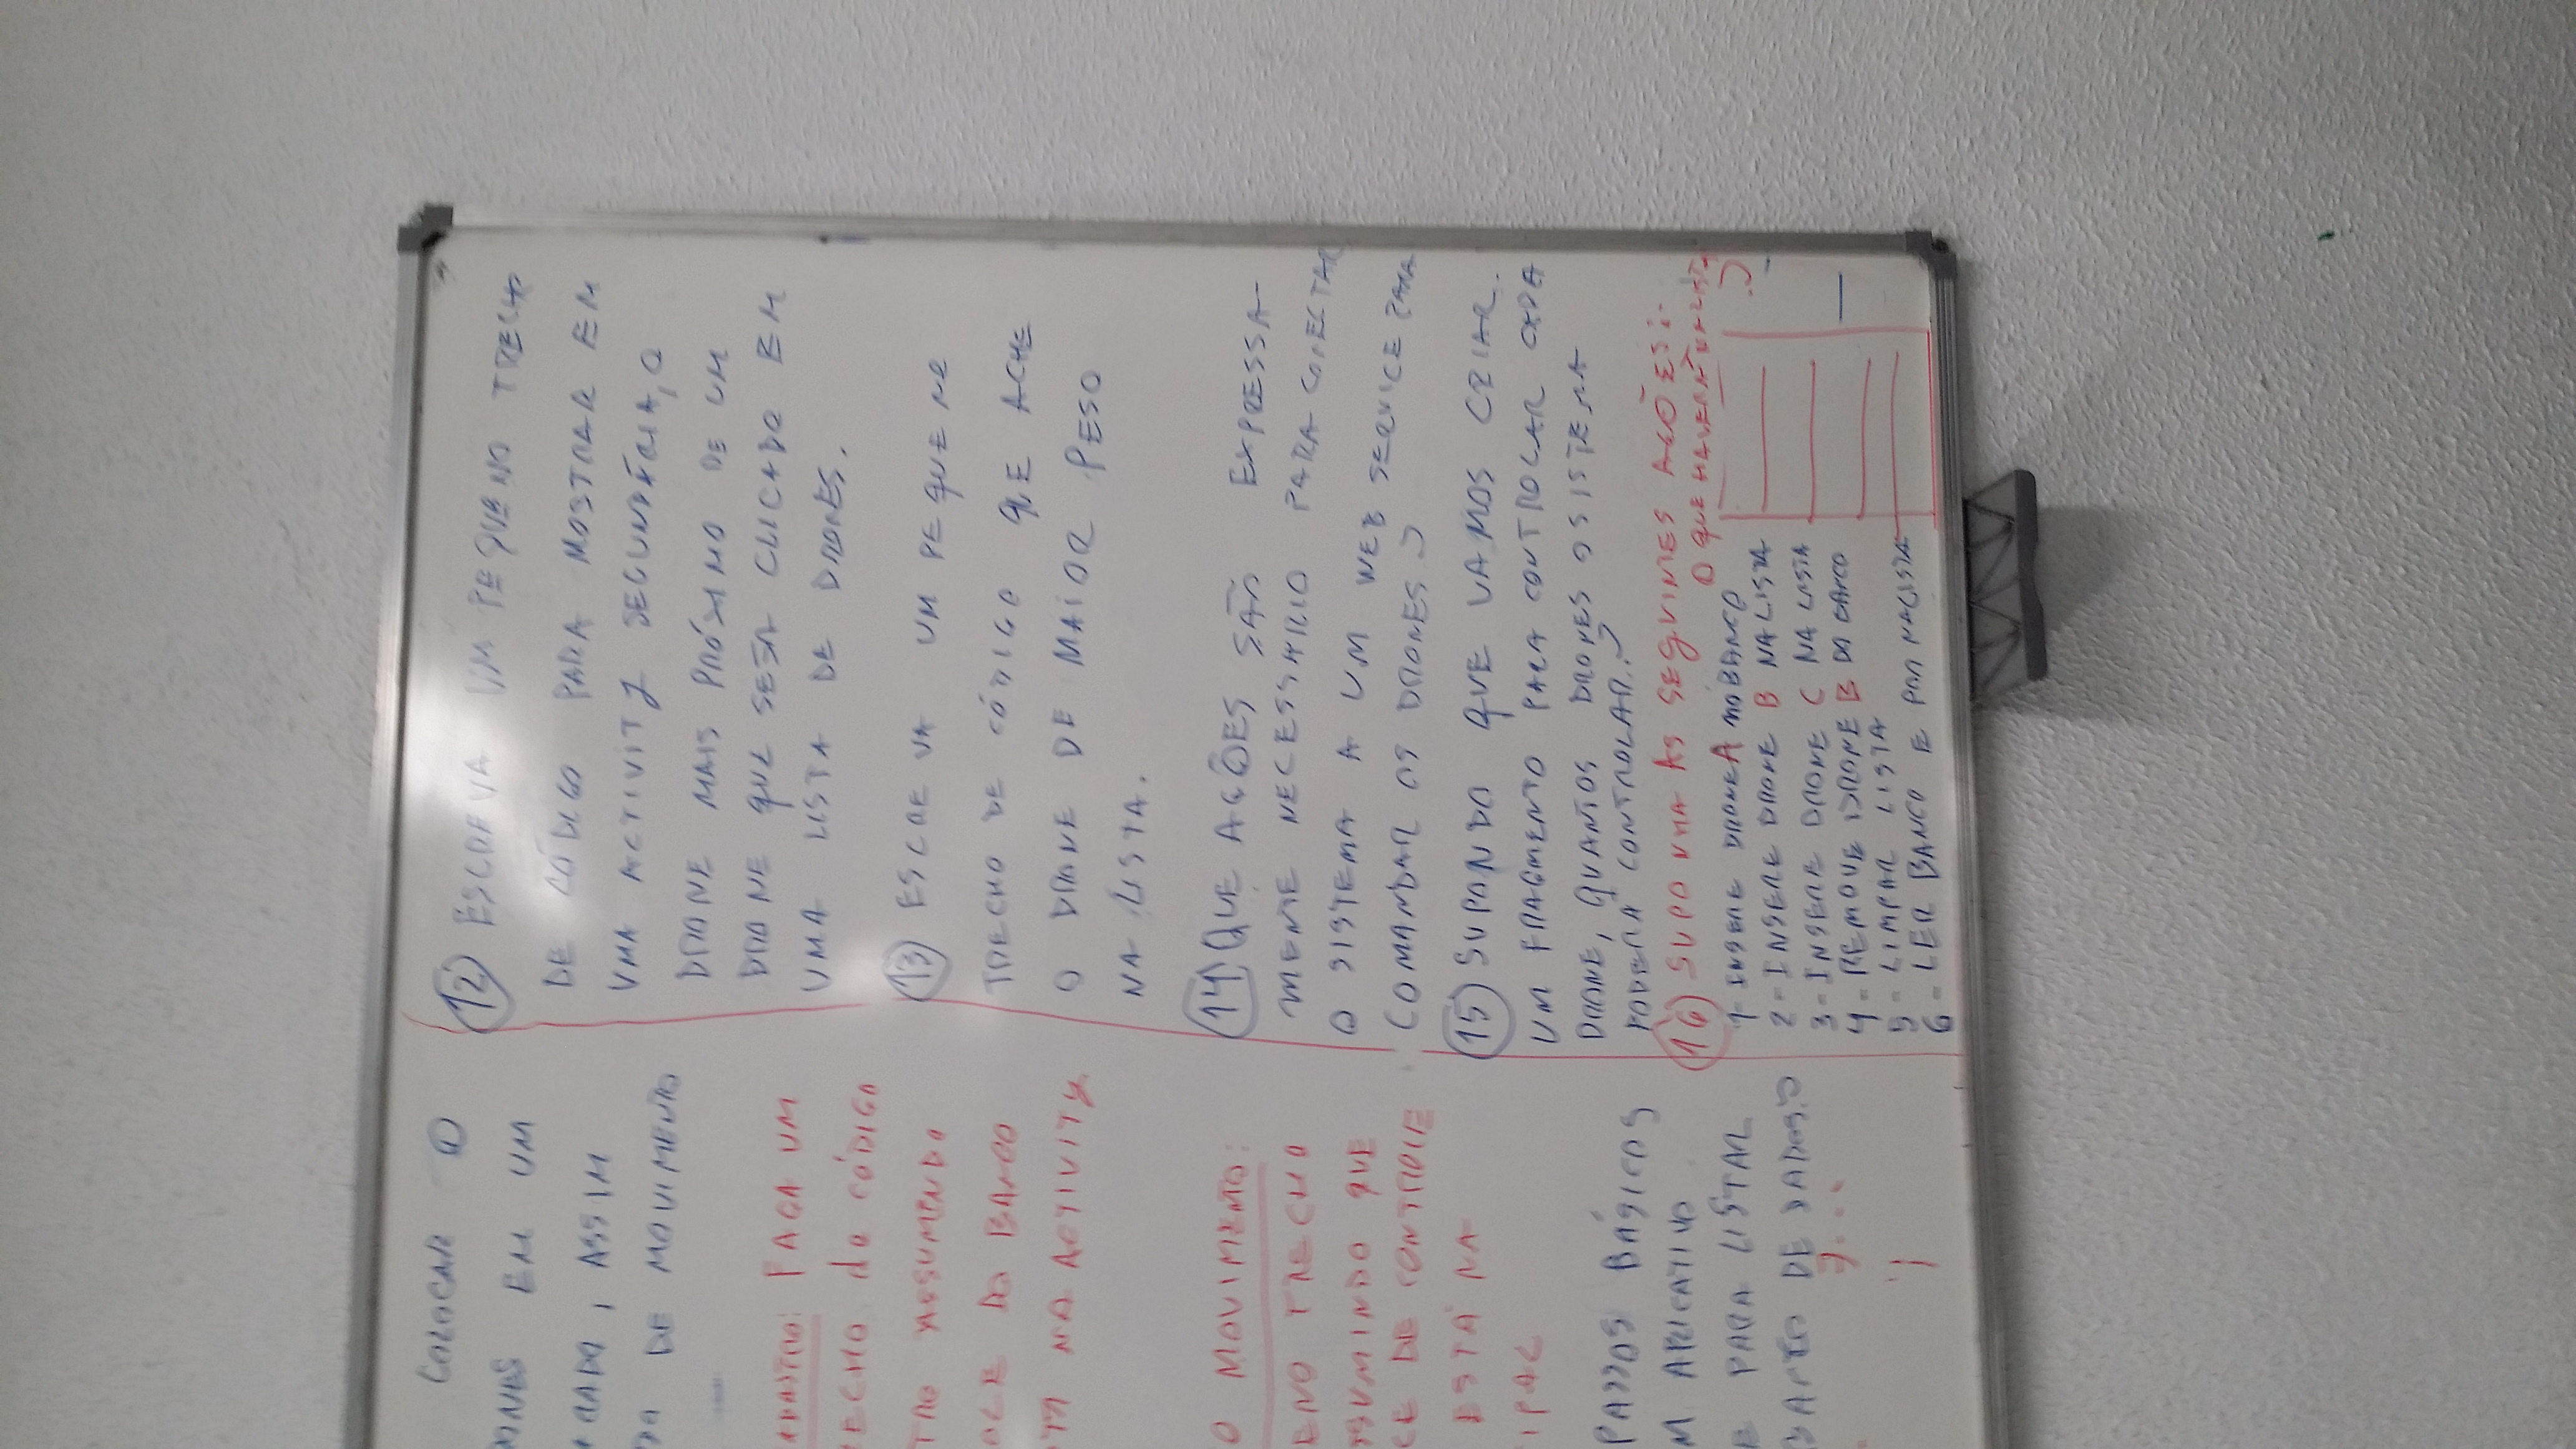 COLOCAR O
EM UM
, ASSIM
DE MOVIMENTO
FAÇA UM
do CÓDIGO
ASSUMINDO
DO BANCO
NA ACTIVITY
O MOVIMENTO:
TRECHO
QUE
DE CONTROLE
ESTÁ NA
PASSOS BÁSICOS
APLICATIVO
E PARA LISTAR
DE DADOS?
12 ESCREVA UM PEQUENO TRECHO
DE CÓDIGO PARA MOSTRAR EM
UMA ACTIVITY SECUNDÁRIA, O
DRONE MAIS PRÓXIMO DE UM
DRONE QUE SEJA CLICADO EM
UMA LISTA DE DRONES.
13 ESCREVA UM PEQUENO
TRECHO DE CÓDIGO QUE ACHE
O DRONE DE MAIOR PESO
NA LISTA.
14 QUE AÇÕES SÃO EXPRESSA-
MENTE NECESSÁRIO PARA CONECTAR
O SISTEMA A UM WEB SERVICE PARA
COMANDAR OS DRONES?
15 SUPONDO QUE VAMOS CRIAR
UM FRAGMENTO PARA CONTROLAR CADA
DRONE, QUANTOS DRONES O SISTEMA
PODERÁ CONTROLAR..?
16 SUPONHA AS SEGUINTES AÇÕES:
O QUE HAVERÁ NA LISTA
?
1- INSERE DRONE A NO BANCO
2- INSERE DRONE B NA LISTA
3- INSERE DRONE C NA LISTA
4- REMOVE DRONE B DO BANCO
5- LIMPAR LISTA
6- LER BANCO E POR NA LISTA